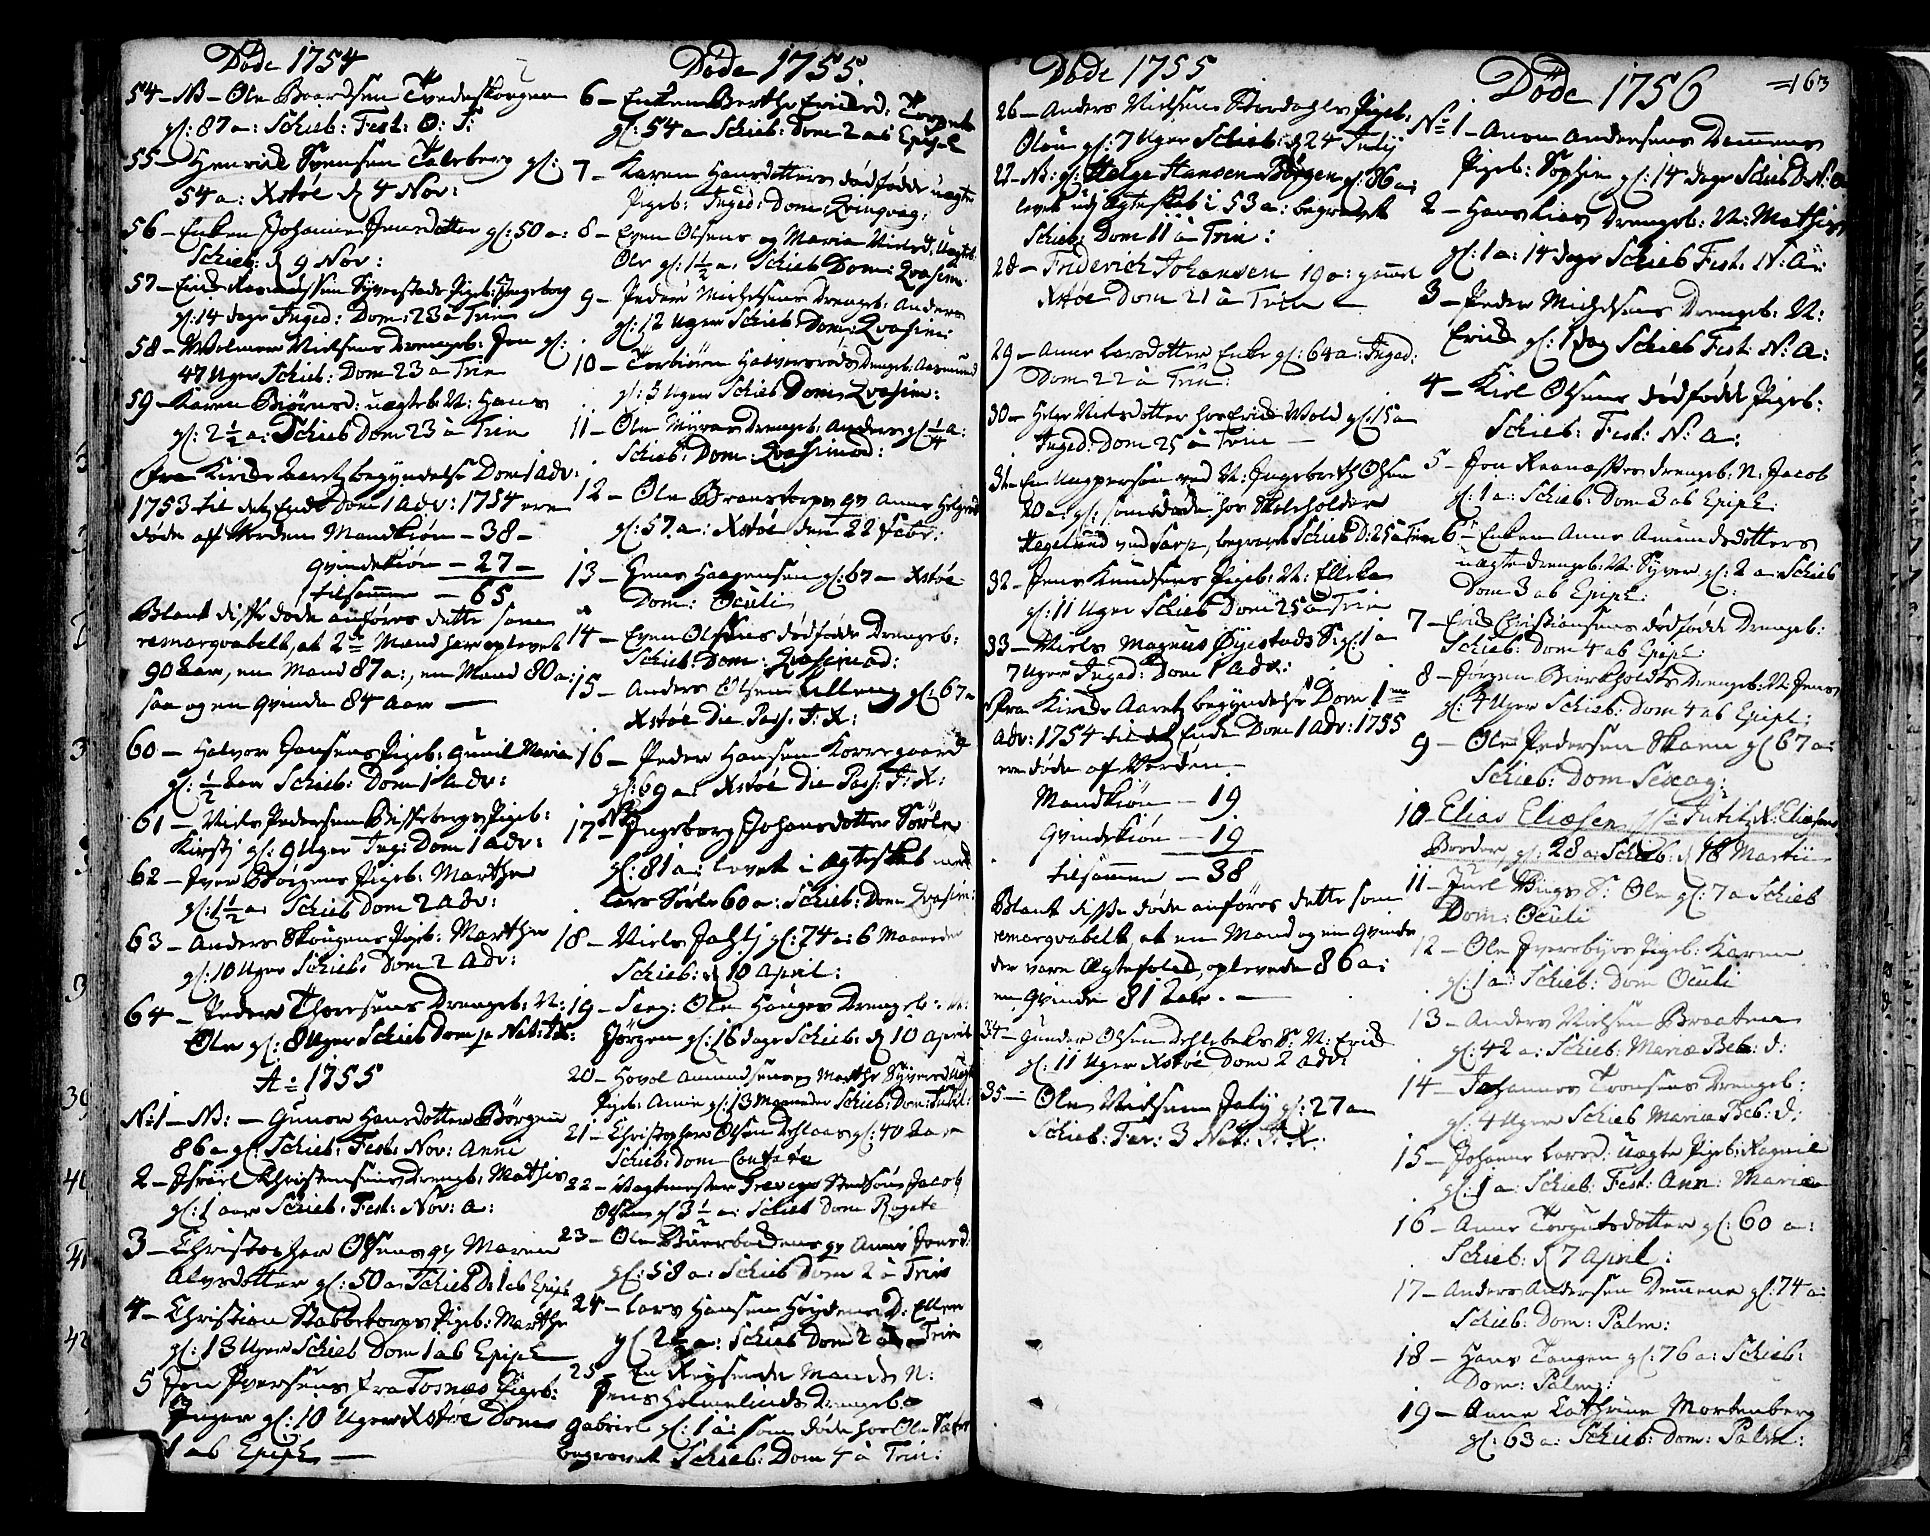 Døde 1754
54 – NB – Ole Baardsen Tvedeskougen
gl: 87 a: Schieb: Fest: O: S:
55 – Henrich Svensen Taleberg gl:
54 a: Xstøe d 4 Nov:
56 – Enken Johanne Jensdotter gl: 50 a:
Schieb: d 9 Nov:
57 – Erich Rasmussen Syverstads Pigeb: Ingeborg
gl: 14 dage Inged: Dom: 23 a Trin
58 – Wolmer Nielsens Drengeb: Jon gl:
47 Uger Schieb: Dom 23 a Trin
59 – Karen Biørnsd: uægteb: N: Hans
gl: 2 1/2 a: Schieb Dom 23 a Trin
Fra Kirke Aaretz begyndelse Dom 1 Adv:
1753 til detz Ende Dom 1 Adv: 1754 ere
døde af Verden Mandkiøn – 38 –
qvindekiøn – 27 –
tilsammen – 65
Blant disse døde anføres dette som
remarqvabelt, at 2de Mand har oplevet
90 Aar, en Mand 87 a:, en Mand 80 a:
saa og en qvinde 84 Aar –
60 – Halvor Jensens Pigeb: Gunil Maria
gl: 1/2 Aar Schieb: Dom 1 Adv:
61 – Niels Pedersen Bisseberge Pigeb:
Kirstj gl: 9 Uger Ing: Dom 1 Adv:
62 – Iver Børgens Pigeb: Marthe
gl: 1 1/2 a: Schieb Dom 2 Adv:
63 – Anders Skougens Pigeb: Marthe
gl: 10 Uger Schieb: Dom 2 Adv:
64 – Peder Thoresens Drengeb: N:
Ole gl: 8 Uger Schieb Dom p Nat: Xti:
A: 1755
No 1 – NB: – Gunor Hansdotter Børgen
86 a gl: Schieb: Fest: Nov: Anni
2 – Israel Christensens Drengeb: Mathis
gl: 1 aar Schieb: Fest: Nov: a:
3 – Christopher Olsens qv Maren
Alvsdotter gl: 50 a: Schieb D: 1 ab Epiph
4 – Christian Stabbetorps Pigeb: Marthe
gl: 13 Uger Schieb Dom 1 ab Epiph
5 Jon Iversens fra Tosnæs Pigeb:
Inger gl: 10 Uger Xstøe Dom
1 ab Epiph –
Døde 1755.
6 – Enken Berthe Ericsd: Torpet
gl: 54 a Schieb: Dom 2 ab Epiph
7 – Karen Hansdotters dødfødde uægte
Pigeb: Inged: Dom: Qvinqvag:
8 – Even Olsens og Maria Nielsd: Uægteb:
Ole gl: 1 1/2 a: Schieb Dom: Qvasim:
9 – Peder Michelsens Drengeb: Anders
gl: 12 Uger Schieb: Dom: Qvasim:
10 – Torbiørn Halversrøds Drengeb: Aasmund
gl: 5 Uger Schieb Dom: Qvasim:
11 – Ole Myrers Drengeb: Anders gl 1/4 a:
Schieb: Dom: Qvasimod:
12 – Ole Branstorps qv Anne Helgesd
gl: 57 a: Xstøe den 22 Febr:
13 – Hens Haagensen gl: 67 a Xstøe
Dom: Oculi
14 – Even Olsens dødfødde Drengeb:
Schieb: Dom: Qvasimod:
15 – Anders Olsen Ulleng gl: 67 a
Xstøe Die Pass: J: X:
16 – Peder Hansen Korregaard
gl: 69 a: Xstøe Die Pass: J: X:
17 – NB Ingeborg Johansdotter Sørle
gl: 81 a: levet i Ægteskab med
Lars Sørle 60 a: Schieb: Dom Qvasim:
18 – Niels Jahtj gl: 74 a: 6 Maaneder
Schieb: d 10 April:
19 – Serg: Ole Hauges Drengeb: N:
Jørgen gl: 16 dage Schieb: d 10 April
20 – Hovel Amundsens og Marthe Syversd Uægte
Pigeb: Anne gl: 13 Maaneder Schieb: Dom: Jubil:
21 – Christopher Olsen Dehlaas gl: 40 Aar
Schieb: dom Cantate
22 – Vagtmester Trevigs Stedsøn Jacob
Olsen gl 3 1/2 a: Schieb Dom Rogate
23 – Ole Buerbachens qv Anne Jonsd:
gl: 58 a: Schieb Dom 2 a Trin
24 – Lars Hansen Høydens D: Ellen
gl 2 1/2 a: Schieb Dom 2 a Trin
25 – En Reysende Mands N:
Jens Hammelunds Drengeb:
Gabriel gl: 1 a: som døde hos Ole
begravet Schieb: Dom 4 a Trin:
Døde 1755
26 – Anders Nielsen Stordagles Pigeb:
Oliu gl: 7 Uger Schieb: d 24 July
27 – NB: gl: Helge Hansen Børgen gl: 86 a:
levet udj Ægteskab i 53 a: begravet
Schieb: Dom 11 a Trin:
28 – Friderich Johansen 19 a: gammel
Xstøe Dom 21 a Trin –
29 – Anne Larsdotter Enke gl: 64 a: Inged:
Dom 22 a Trin:
30 – Helge Nielsdotter hos Erich Wold gl: 15 a
Inged: Dom 25 a Trin –
31 – En Ungperson ved N: Ingebreth Olsen
20 a: gl: som døde hos Skoleholder
Hagelund ved Sarp, begravet Schieb D: 25 a Trin
32 – Jens Knudsens Pigeb: N: Elleke
gl: 11 Uger Schieb Dom 25 a Trin
33 – Niels Magnus Øyestads S: gl: 1 a
7 Uger Inged: Dom 1 Adv:
Fra Kirke Aaretz begyndelse Dom 1me
Adv: 1754 til detz Ende Dom 1 Adv: 1755
ere døde af Verden
Mandkiøn – 19
Qvindekiøn – 19
tilsammen – 38
Blant disse døde anføres dette som
remarqvabelt, at en Mand og en Qvinde
der vare Ægtefolck, oplevede 86 a:
en Qvinde 81 Aar. –
34 – Gunder Olsen Dehlebeks S: N: Erich
gl: 11 Uger Xstøe Dom 2 Adv:
35 – Ole Nielsen Jaly gl: 27 a
Schieb: Fer: 3 Nat: J: X:
Døde 1756
163
No 1 – Anon Andersens Demmens
Pigeb: Sophie gl: 14 dage Schieb D N: a
2 – Hans Lies Drengeb: N: Mathis
gl: 1 a: 14 dage Schieb Fest: N: A:
3 – Peder Michelsens Drengeb: N:
Erich gl: 1 dag Schieb Fest: N: A:
4 – Kiel Olsens dødfødde Pigeb:
Schieb: Fest: N: a:
5 – Jon Raanaases drengeb: N: Jacob
gl: 1 a: Schieb: Dom 3 ab Epiph:
6 – Enken Anne Amundsdotters
uægte drengeb: N: Syver gl: 2 a: Schieb
Dom 3 ab Epiph:
7 – Erich Christiansens dødfødde Drengeb:
Schieb: Dom 4 ab Epiph:
8 – Jørgen Bierkholdts Drengeb: N: Jens
gl: 4 Uger Schieb: Dom 4 ab Epiph:
9 – Ole Pedersen Skaren gl 67 a:
Schieb: Dom Sexag:
10 – Elias Eliæsen Sr: Intitz N: Eliæsens
Broder, gl: 28 a: Schieb: d 18 Martii
11 – Juel Wiigs S: Ole gl: 7 a Schieb
Dom: Oculi
12 – Ole Iversbyes Pigeb: Karen
gl: 1 a: Schieb: Dom Oculi
13 – Anders Nielsen Braaten
gl: 42 a: Schieb: Mariæ Beb: d:
14 – Johannes Tronsens Drengeb:
gl: 4 Uger Schieb Mariæ Beb: d:
15 – Johanne Larsd: Uægte Pigeb: Ragnil
gl: 1 a: Schieb: Fest: Ann: Mariæ
16 – Anne Torgutsdotter gl: 60 a:
Schieb: d 7 April:
17 – Anders Andersen Demmene gl: 74 a:
Schieb: Dom: Palm:
18 – Hans Tangen gl: 76 a: Schieb:
Dom: Palm:
19 – Anne Cathrine Mortenberg
gl: 63 a: Schieb: Dom: Palm: